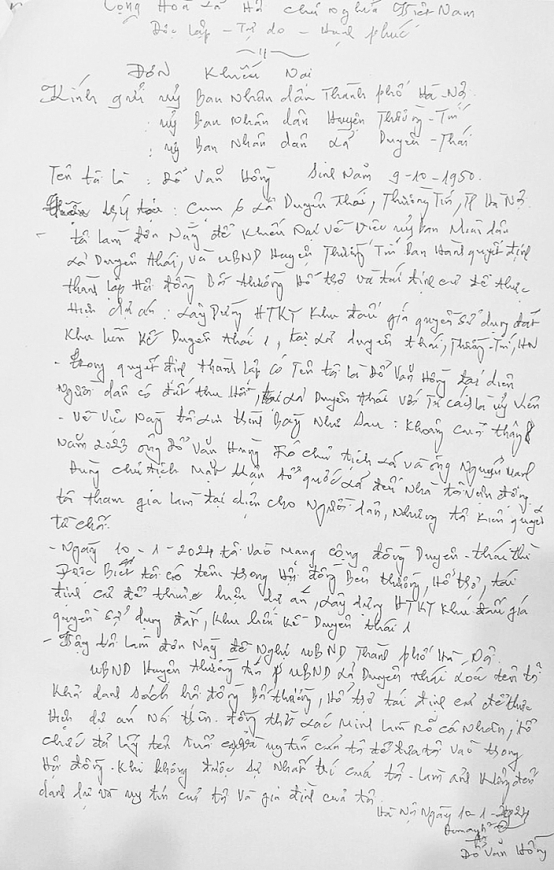 Cộng Hoà xã Hội chủ nghĩa Việt Nam
Độc lập - Tự do - Hạnh phúc
Đơn Khiếu Nại
Kính gửi uỷ Ban Nhân dân Thành phố Hà Nội
: uỷ Ban Nhân dân Huyện Thường - Tín
: uỷ Ban Nhân dân xã Duyên - Thái
Tên tôi là : Đỗ Văn Hồng Sinh Năm 9-10-1950.
trú tại : Cụm 6 xã Duyên Thái, Thường Tín, TP Hà Nội.
- tôi làm đơn Này để khiếu Nại về việc uỷ ban Nhân dân
xã Duyên Thái, và UBND Huyện Thường Tín Ban Hành quyết định
thành lập Hội đồng Bồi thường Hỗ trợ và tái định cư để thực
Hiện dự án : xây Dựng HTKT Khu đấu giá quyền sử dụng đất
Khu liền kề Duyên Thái 1, tại xã duyên thái, Thường-Tín, HN
- trong quyết định thành lập có Tên tôi là Đỗ Văn Hồng đại diện
Người dân có đất thu Hồi, tại xã Duyên Thái với Tư cách là uỷ viên
- về việc Này tôi xin trình Bày Như Sau : Khoảng cuối tháng
Năm 2023 ông đỗ Văn Hang Phó chủ tịch xã và ông Nguyễn
Hùng chủ tịch Mặt trận tổ quốc xã đến Nhà tôi vận động
tôi tham gia làm đại diện cho Người dân, Nhưng tôi kiên quyết
từ chối.
- Ngày 10-1-2024 tôi vào mạng cộng đồng Duyên-thái thì
Được Biết tôi có tên trong Hội đồng Bồi thường, Hỗ trợ, tái
định cư để thực hiện dự án, xây dựng HTKT Khu đấu giá
quyền sử dụng đất, Khu liền kề Duyên thái 1
- Vậy tôi làm đơn Này đề Nghị UBND Thành phố Hà Nội.
UBND Huyện thường tín UBND xã Duyên Thái xoá tên tôi
Khỏi danh sách hội đồng Bồi thường, Hỗ trợ tái định cư để thực
Hiện dự án Nói trên. đồng thời xác Minh làm Rõ cá Nhân, tổ
chức đã lấy tên tuổi uy tín của tôi để đưa tôi vào trong
Hội đồng. Khi không được sự Nhất trí của tôi. làm ảnh Hưởng đến
danh dự và uy tín của tôi và gia đình của tôi
Hà Nội Ngày 10-1-2024
Đỗ Văn Hồng